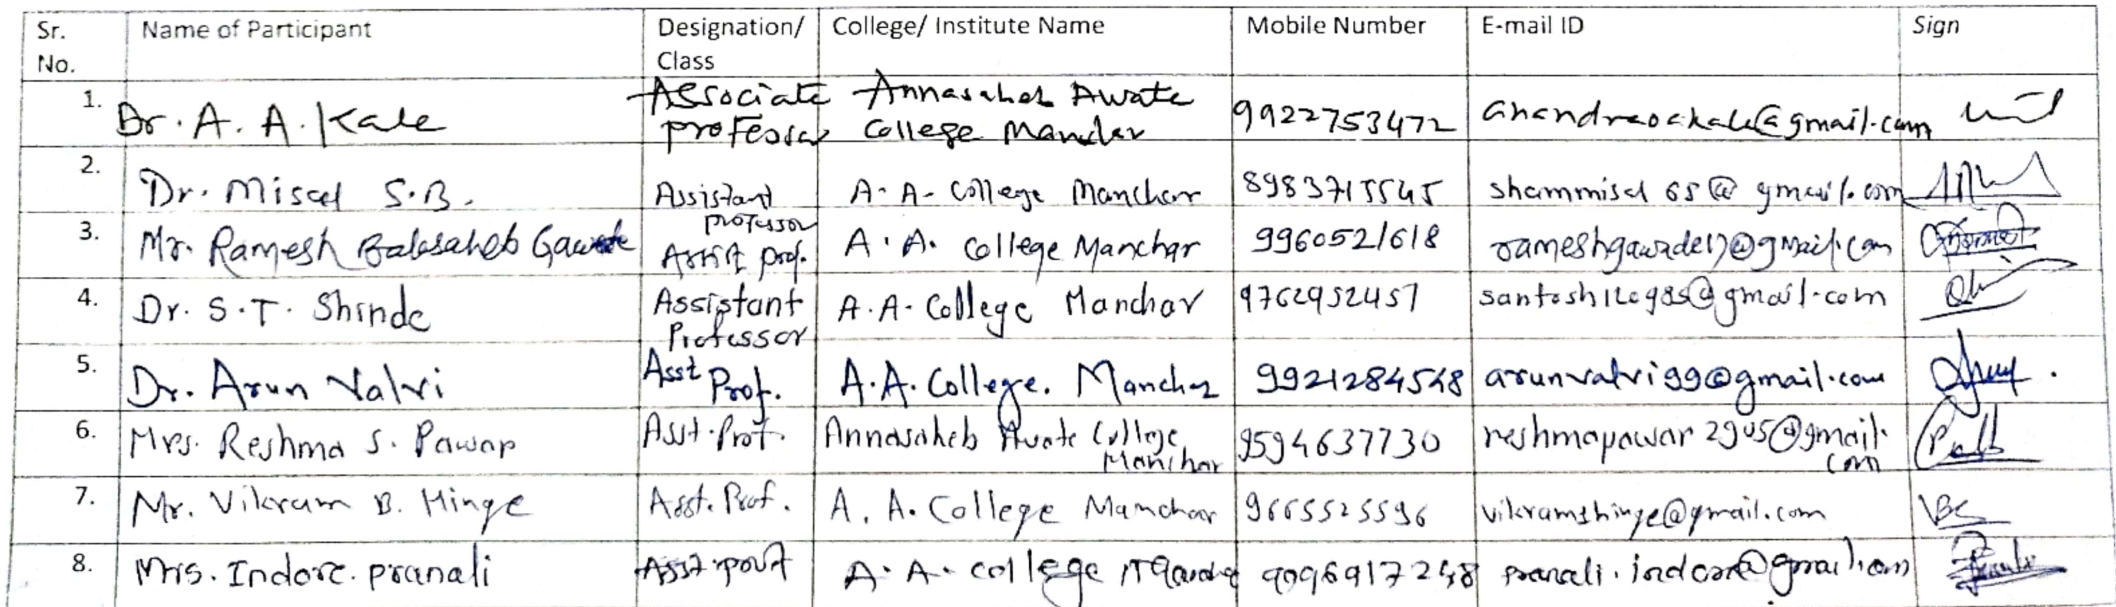 Sr. No. Name of Participant Designation/ Class College/ Institute Name Mobile Number E-mail ID Sign
1. Dr. A. A. Kale Associate professor Annasaheb Awate College Manchar 9922753472 anandraokale@gmail.com
2. Dr. Misal S.B. Assistant professor A. A. College Manchar 8983715545 shammisal65@gmail.com
3. Mr. Ramesh Balasaheb Gawade Assist prof. A. A. College Manchar 9960521618 rameshgawade17@gmail.com
4. Dr. S.T. Shinde Assistant Professor A.A. College Manchar 9762952457
5. Dr. Arun Valvi Asst Prof. A.A. College. Manchar 9921284548 arunvalvi99@gmail.com
6. Mrs. Reshma S. Pawar Asst. Prof. Annasaheb Awate College Manchar 9594637730 reshmapawar2905@gmail.com
7. Mr. Vikram B. Hinge Asst. Prof. A. A. College Manchar 9665525596 vikramshinge@gmail.com
8. Mrs. Indore. pranali Asst. prof A. A. College Manchar 9096917248 pranali.indore@gmail.com